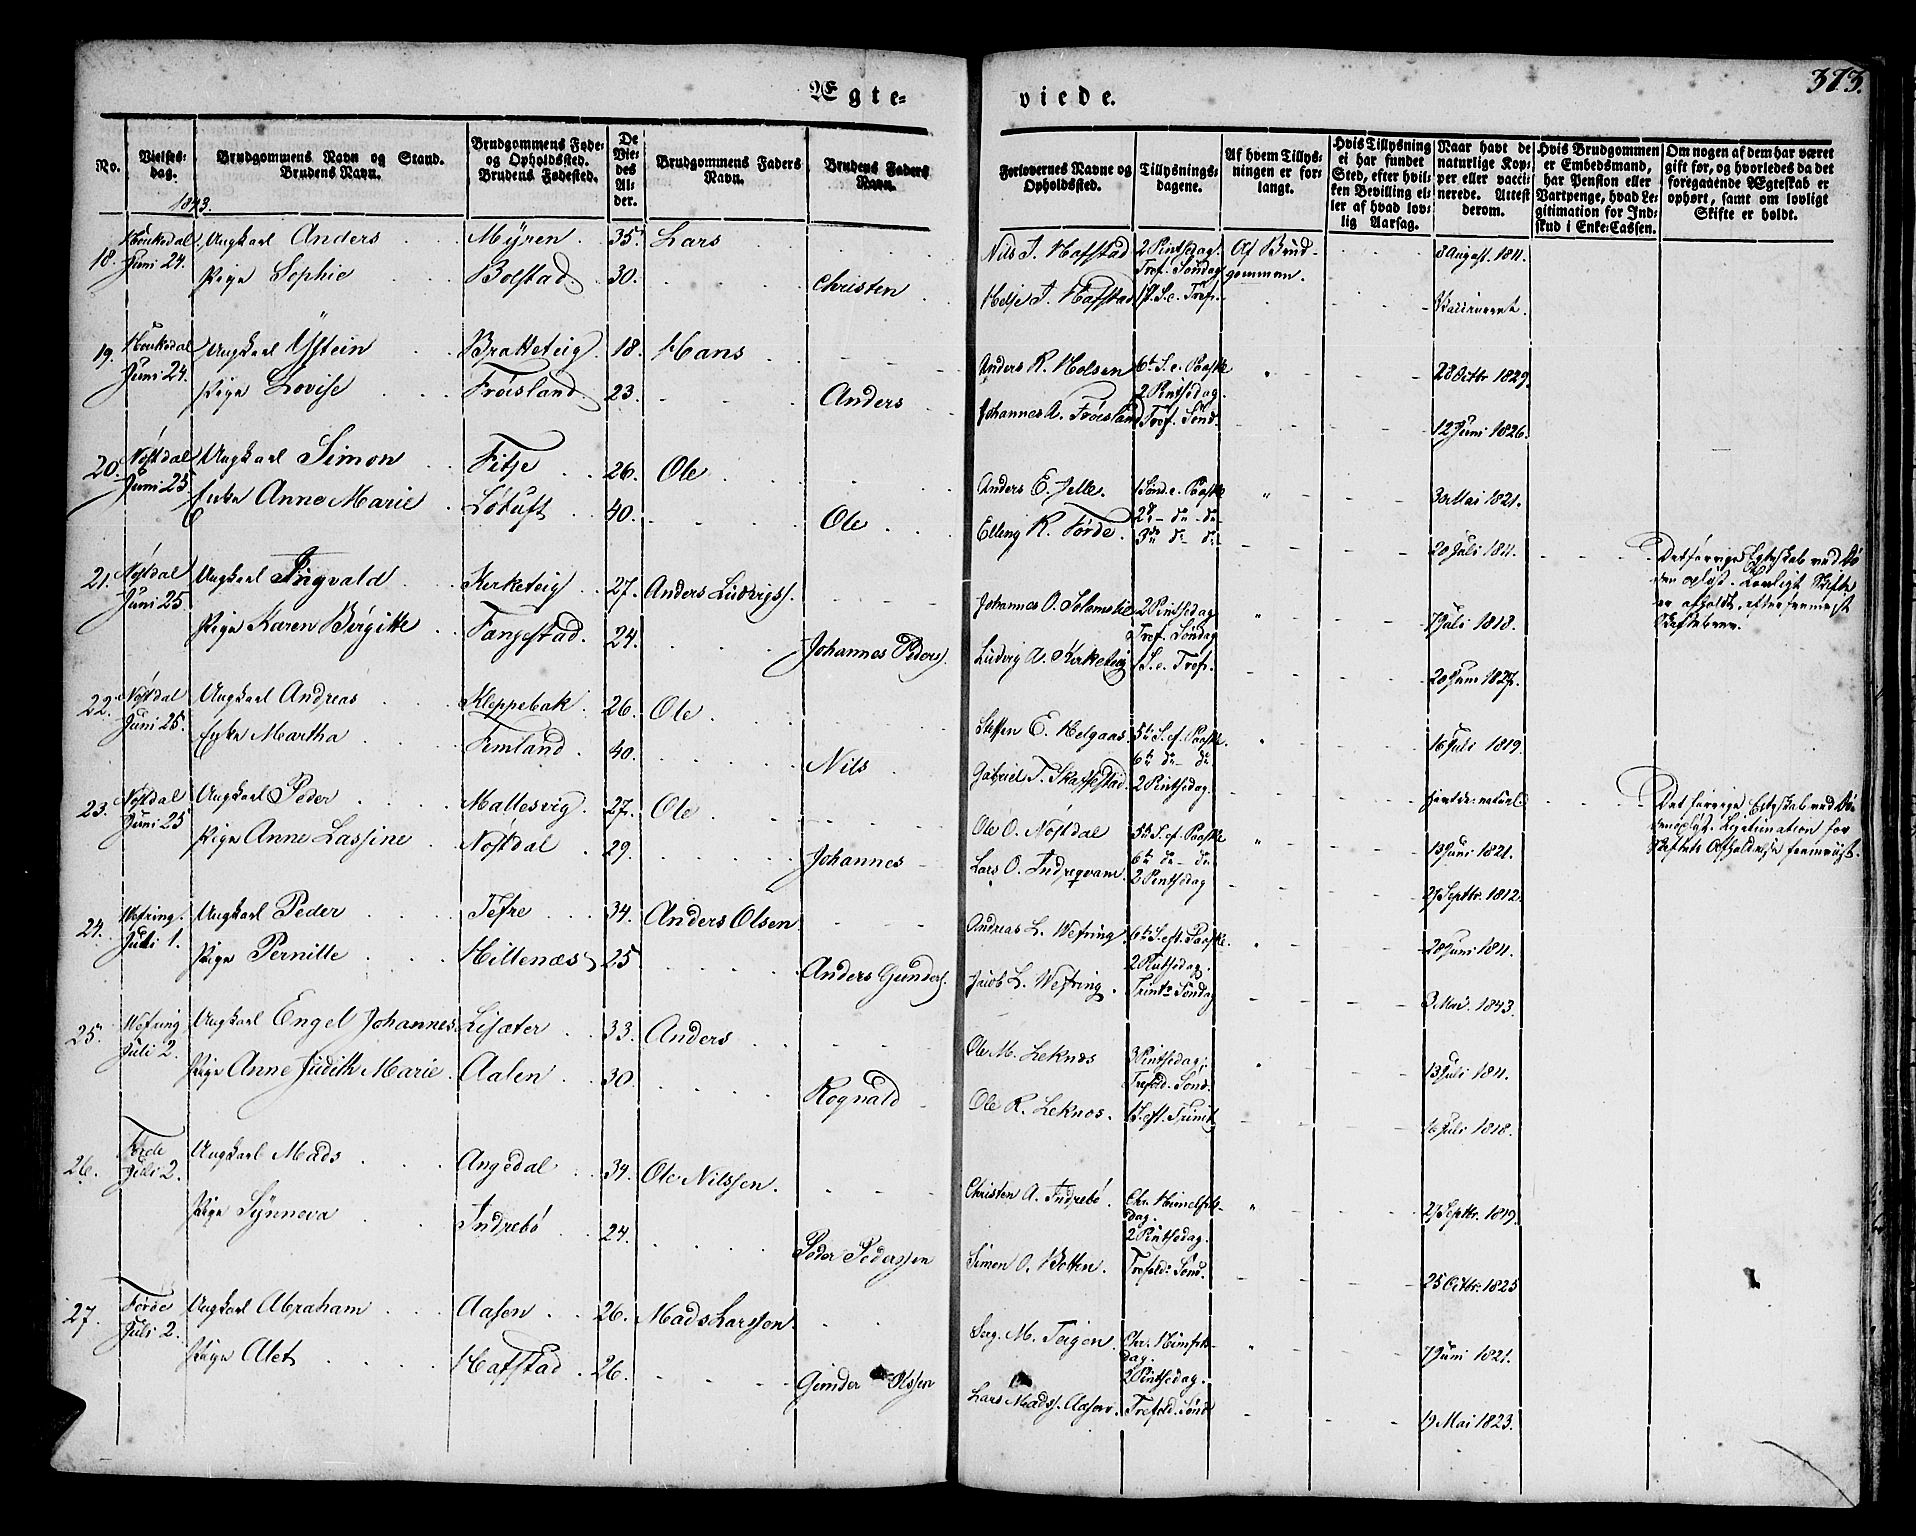 373.
Ægte-
viede.
No.
Vielses-
dag.
Brudgommens Navn og Stand.
Brudens Navn.
Brudgommens Føde-
og Opholdssted.
Brudens Fødested.
De
Vie-
des
Al-
der.
Brudgommens Faders
Navn.
Brudens Faders
Navn.
Forlovernes Navne og
Opholdssted.
Tillysnings-
dagene.
Af hvem Tillys-
ningen er for-
langt.
Hvis Tillysning
ei har fundet
Sted, efter hvil-
ken Bevilling el-
ler af hvad lov-
lig Aarsag.
Naar havt de
naturlige Kop-
per eller vacci-
nerede. Attest
derom.
Hvis Brudgommen
er Embedsmand,
har Pension eller
Vartpenge, hvad Le-
gitimation for Ind-
skud i Enke-Cassen.
Om nogen af dem har været
gift før, og hvorledes da det
foregaaende Ægteskab er
ophørt, samt om lovligt
Skifte er holdt.
1843.
18. Juni 24. Ungkarl Anders Myren 35. Lars Nils J. Hafstad 2 Pintsedag. Af Brud- 8 August. 1811.
Pige Sophie Bolstad 30. Christen Tref. Søndag gommen.
Helje J. Hafstad 1 S. e. Tref. Vaccineret.
19. Juni 24. Ungkarl Ystein Bratteteig 18. Hans Anders R. Holsen 6te S. e. Paaske " 28 Octbr 1829.
Pige Lovise Frøisland 23. Anders 2 Pintsedag.
Johannes A. Frøisland Tref. Sønd. 12 Juni 1826.
20. Nøstdal Juni 25 Ungkarl Simon Fitje 26. Ole Anders E. Jelle. 1 Sønd. e. Paaske " 30 Mai 1821.
Enke Anne Marie Løtuft 40. Ole 2den do do
Elling R. Førde. 3de do do 20 Juli 1811. Det forrige Egteskab ved Dø-
den opløst. Lovligt Skifte
er afholdt, efter fremvist
Skiftebrev.
21. Nøstdal Juni 25 Ungkarl Ingvald Kirketeig 27. Anders Ludvigs. Johannes O. Solemslie 2 Pintsedag " 7 Juli 1818.
Pige Karen Birgitte Fangestad. 24. Johannes Peders. Tref. Søndag
Ludvig A. Kirketeig 1 S. e. Tref. 20 Juni 1827.
22. Nøstdal Juni 25. Ungkarl Andreas Kleppebak 26. Ole Steffen E. Helgaas 5te S. ef. Paaske. " 16 Juli 1819.
Enke Martha Femland 40. Nils 6te do do
Gabriel T. Skarstestad 2 Pintsedag. havt de naturl. Det forrige Egteskab ved Dø-
den opløst. Legitimation for
Skiftets Afholdelse fremviist.
23. Nøstdal Juni 25 Ungkarl Peder Mattesvig 27. Ole Ole O. Nøstdal 5te S. ef. Paaske " 13 Juni 1821.
Pige Anne Lassine Nøstdal 29. Johannes 6te do do
Lars O. Indreqvam 2 Pintsedag 27 Septbr. 1812.
24. Wefring. Juli 1. Ungkarl Peder Tefre 34. Anders Olsen Andreas L. Wefring 6te S. eft. Paaske. " 28 Juni 1811.
Pige Pernille Hillenæs 25 Anders Gunders. 2 Pintsedag.
Jacob L. Wefring. Trint: Søndag 3 Mai 1843.
25. Wefring Juli 2. Ungkarl Engel Johannes Lisæter 33. Anders Ole M. Leknæs 3 Pintsedag. " 13 Juli 1811.
Pige Anne Judith Marie Aalen 30. Rognald Trefold. Sønd.
Ole R. Leknæs. 1 S. eft. Trinit. 16 Juli 1818.
26. Førde Juli 2. Ungkarl Mads Angedal 34. Ole Nilssen. Christen A. Indrebø. Chr. Himelfts- " 27 Septbr. 1819.
Pige Synneva Indrebø 24. Peder Pederssen dag.
2 Pintsedag.
Simon O. Botten. Trefold: Sønd. 25 Octbr. 1825
27. Førde Juli 2. Ungkarl Abraham Aasen 26. Mads Larssen M. Teigen Chr. Himfts- " 7 Juni 1821.
Pige Alet Hafstad 26. Gunder Olssen dag.
2 Pintsedag.
Lars Mads. Aasen. Trefold. Sønd 19 Mai 1823.